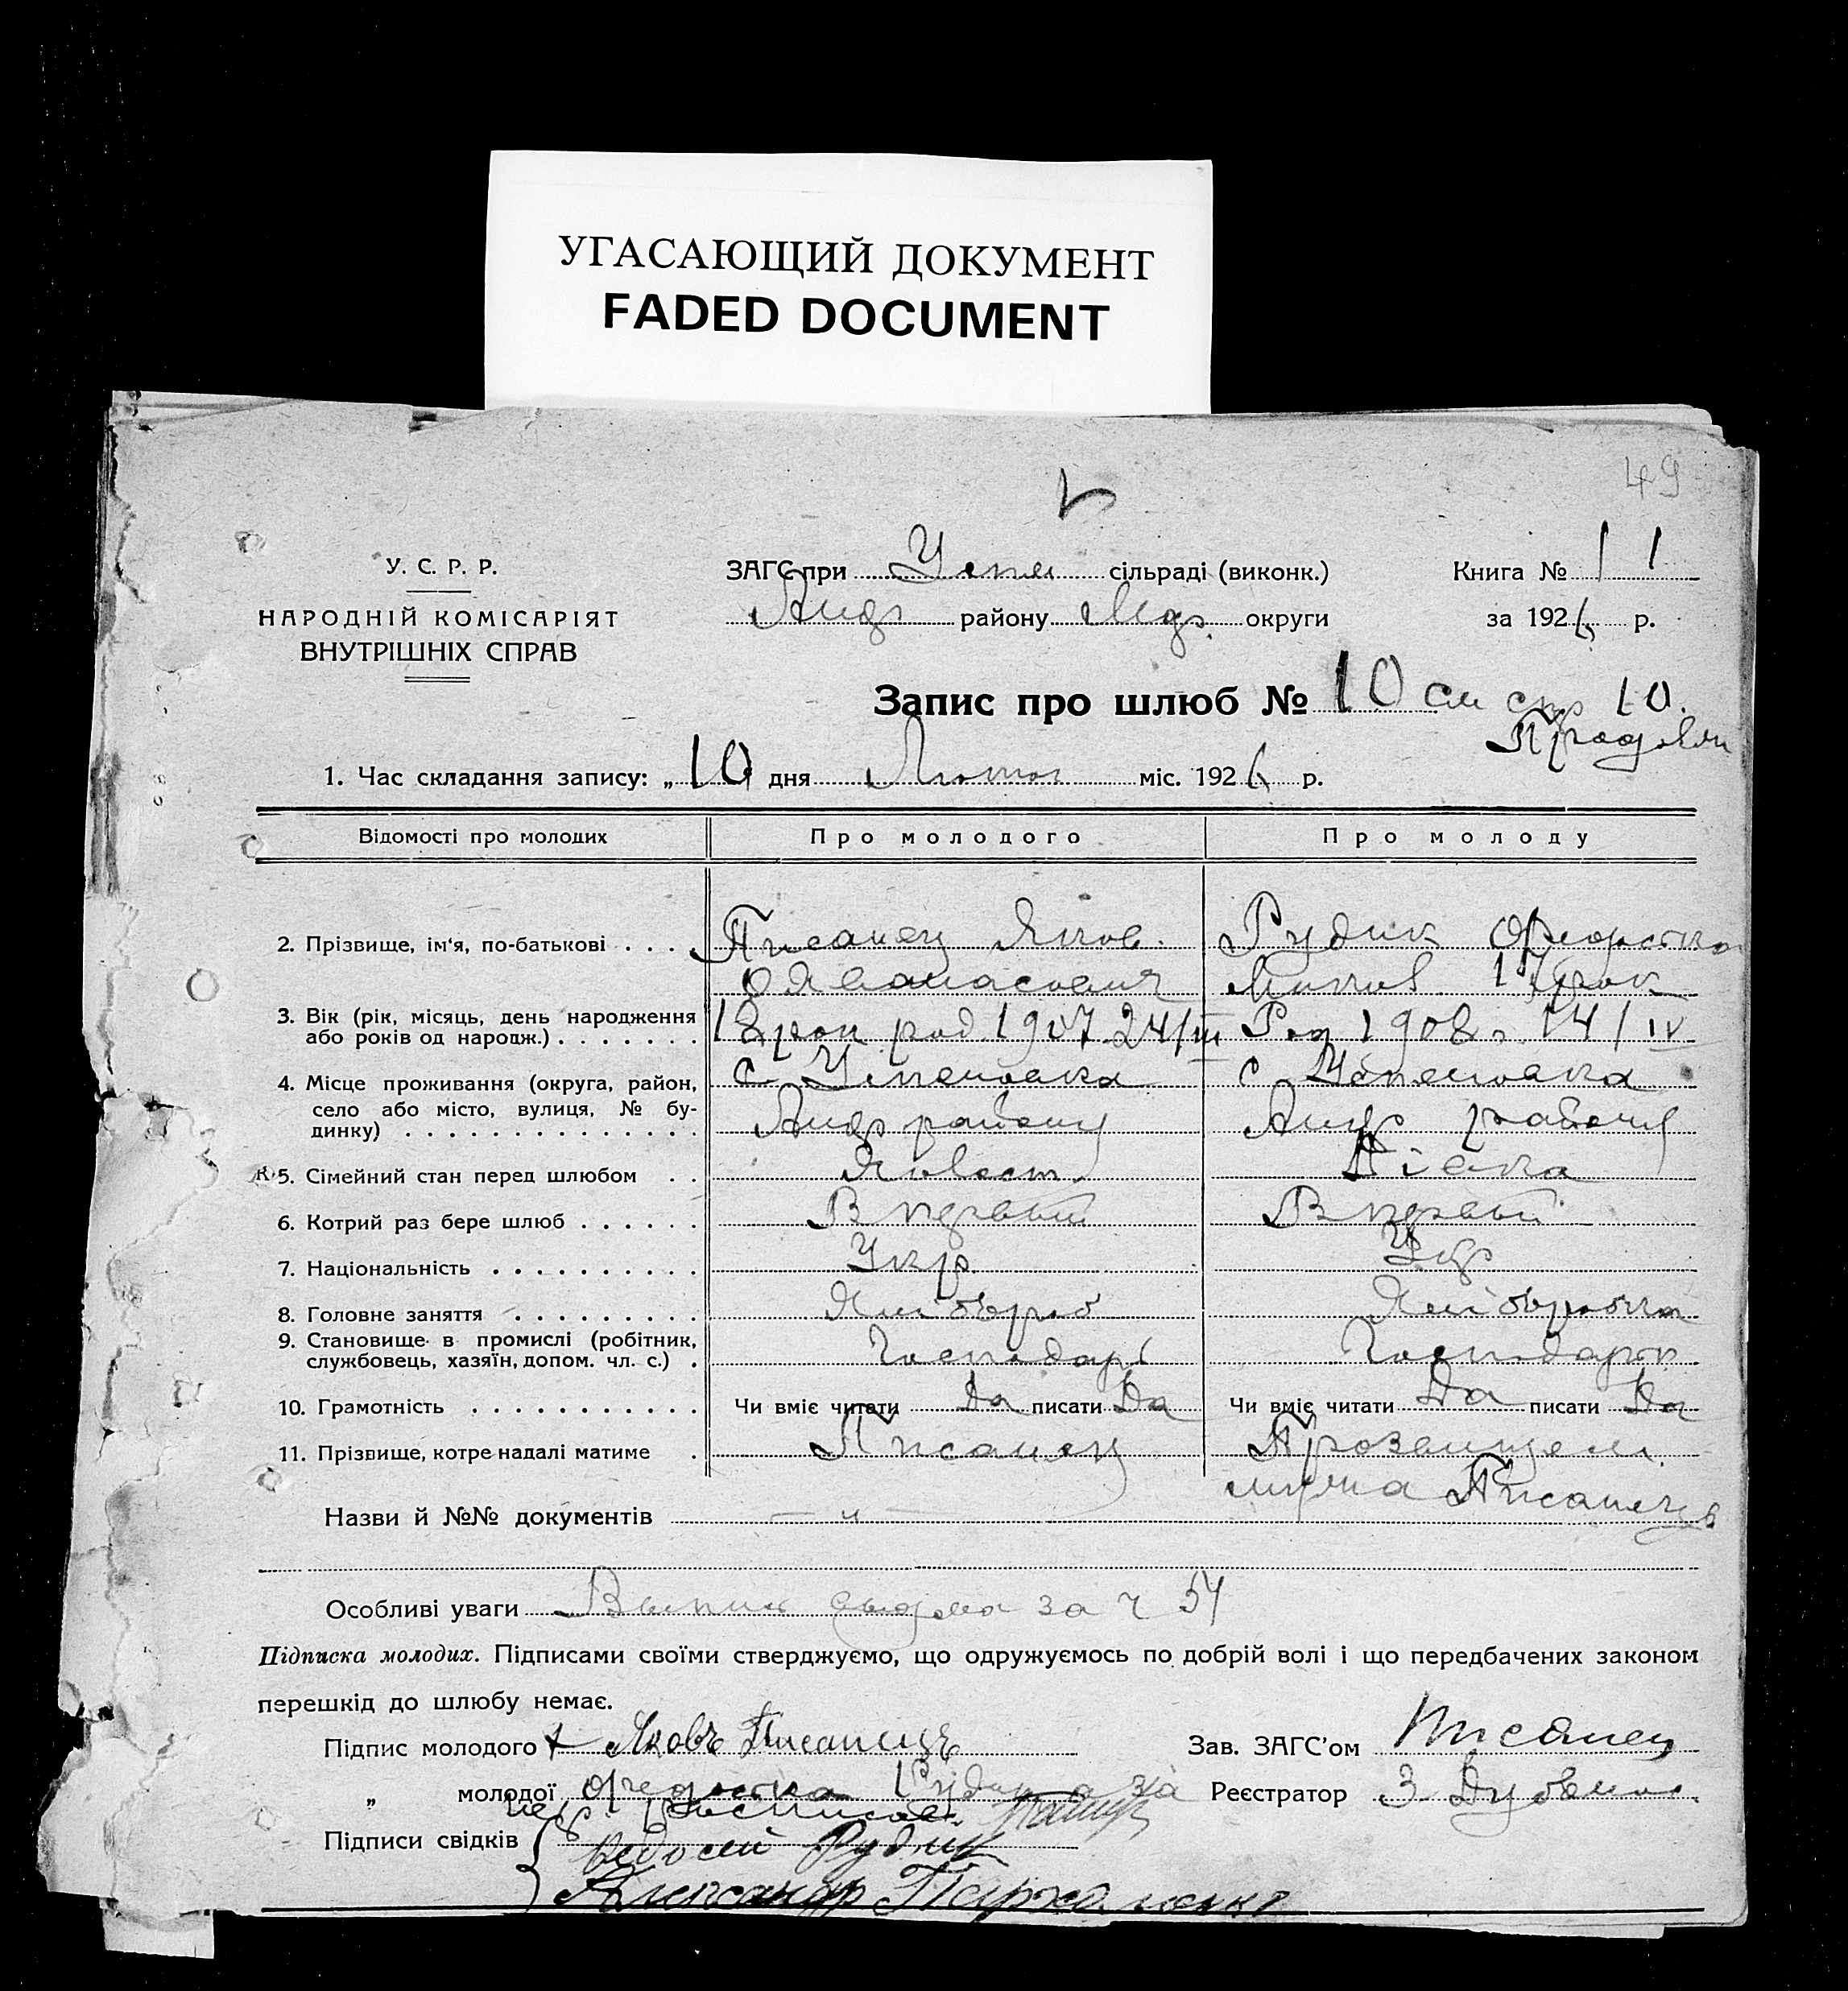 УГАСАЮЩИЙ ДОКУМЕНТ
FADED DOCUMENT
49
У. С. Р. Р.
НАРОДНІЙ КОМІСАРІЯТ
ВНУТРІШНІХ СПРАВ
ЗАГС при Успен сільраді (виконк.)
району округи
Книга № 1
за 1926 р.
Запис про шлюб № 10 см стр 10.
1. Час складання запису: „10 дня Лютого міс. 1926 р.
Відомості про молодих Про молодого Про молоду
2. Прізвище, ім'я, по-батькові . . . . Писанец Яков Рудик
Афанасович 17 рок
3. Вік (рік, місяць, день народження 18 рок род. 1907 24/III Род 1908 г. 14/IV
або років од народж.) . . . . . . .
4. Місце проживання (округа, район, с. Успеновка с Успеновка
село або місто, вулиця, № бу-
динку) . . . . . . . . . . . . . . Андр району Андр району
5. Сімейний стан перед шлюбом . . Дівка
6. Котрий раз бере шлюб . . . . . . В первий В первий
7. Національність . . . . . . . . . . Укр Укр
8. Головне заняття . . . . . . . . . Хлібороб Хлібороб
9. Становище в промислі (робітник,
службовець, хазяїн, допом. чл. с.) . Господарь
10. Грамотність . . . . . . . . . . . Чи вміє читати Да писати Да Чи вміє читати Да писати Да
11. Прізвище, котре надалі матиме . Писанец Прозвищем
мужа Писанец
Назви й №№ документів — „ —
Особливі уваги Выпис видана за ч 54
Підписка молодих. Підписами своїми стверджуємо, що одружуємось по добрій волі і що передбачених законом
перешкід до шлюбу немає.
Підпис молодого + Яковъ Писанецъ Зав. ЗАГС'ом Писанец
„ молодої Рудик за Реєстратор З Дубина
Підписи свідків
Федосей Рудик
Александр Пархоменко